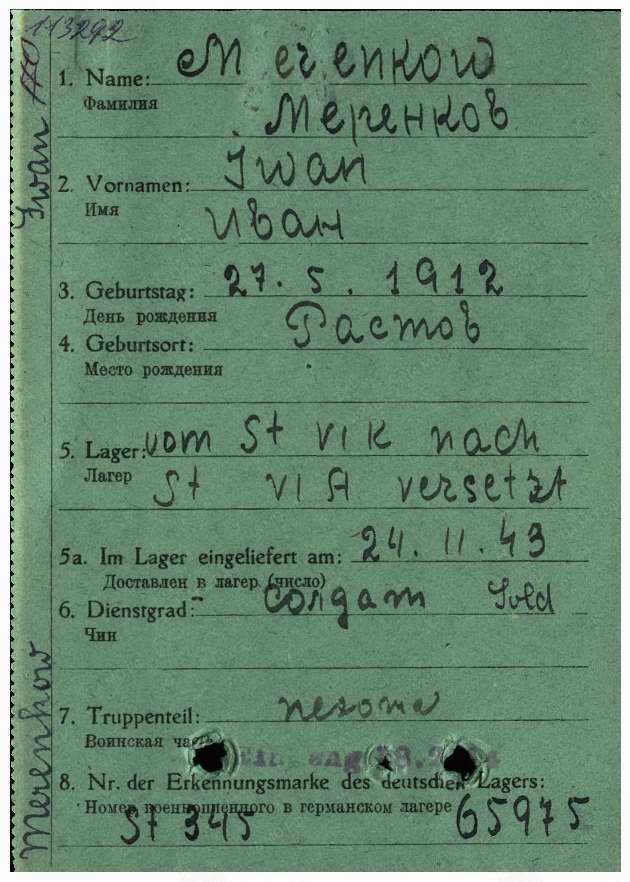 113292
Iwan
1. Name: Merenkow
Фамилия
Меренков
2. Vornamen: Iwan
Имя
Иван
3. Geburtstag: 27. 5. 1912
День рождения
4. Geburtsort: Растов
Место рождения
5. Lager: vom St VI K nach
Лагер
St VI A versetzt
5a. Im Lager eingeliefert am: 24. 11. 43
Доставлен в лагер (число)
6. Dienstgrad: солдат Sold
Чин
7. Truppenteil: пехота
Воинская часть
8. Nr. der Erkennungsmarke des deutschen Lagers:
Номер военнопленного в германском лагере
St 345 65975
Merenkow